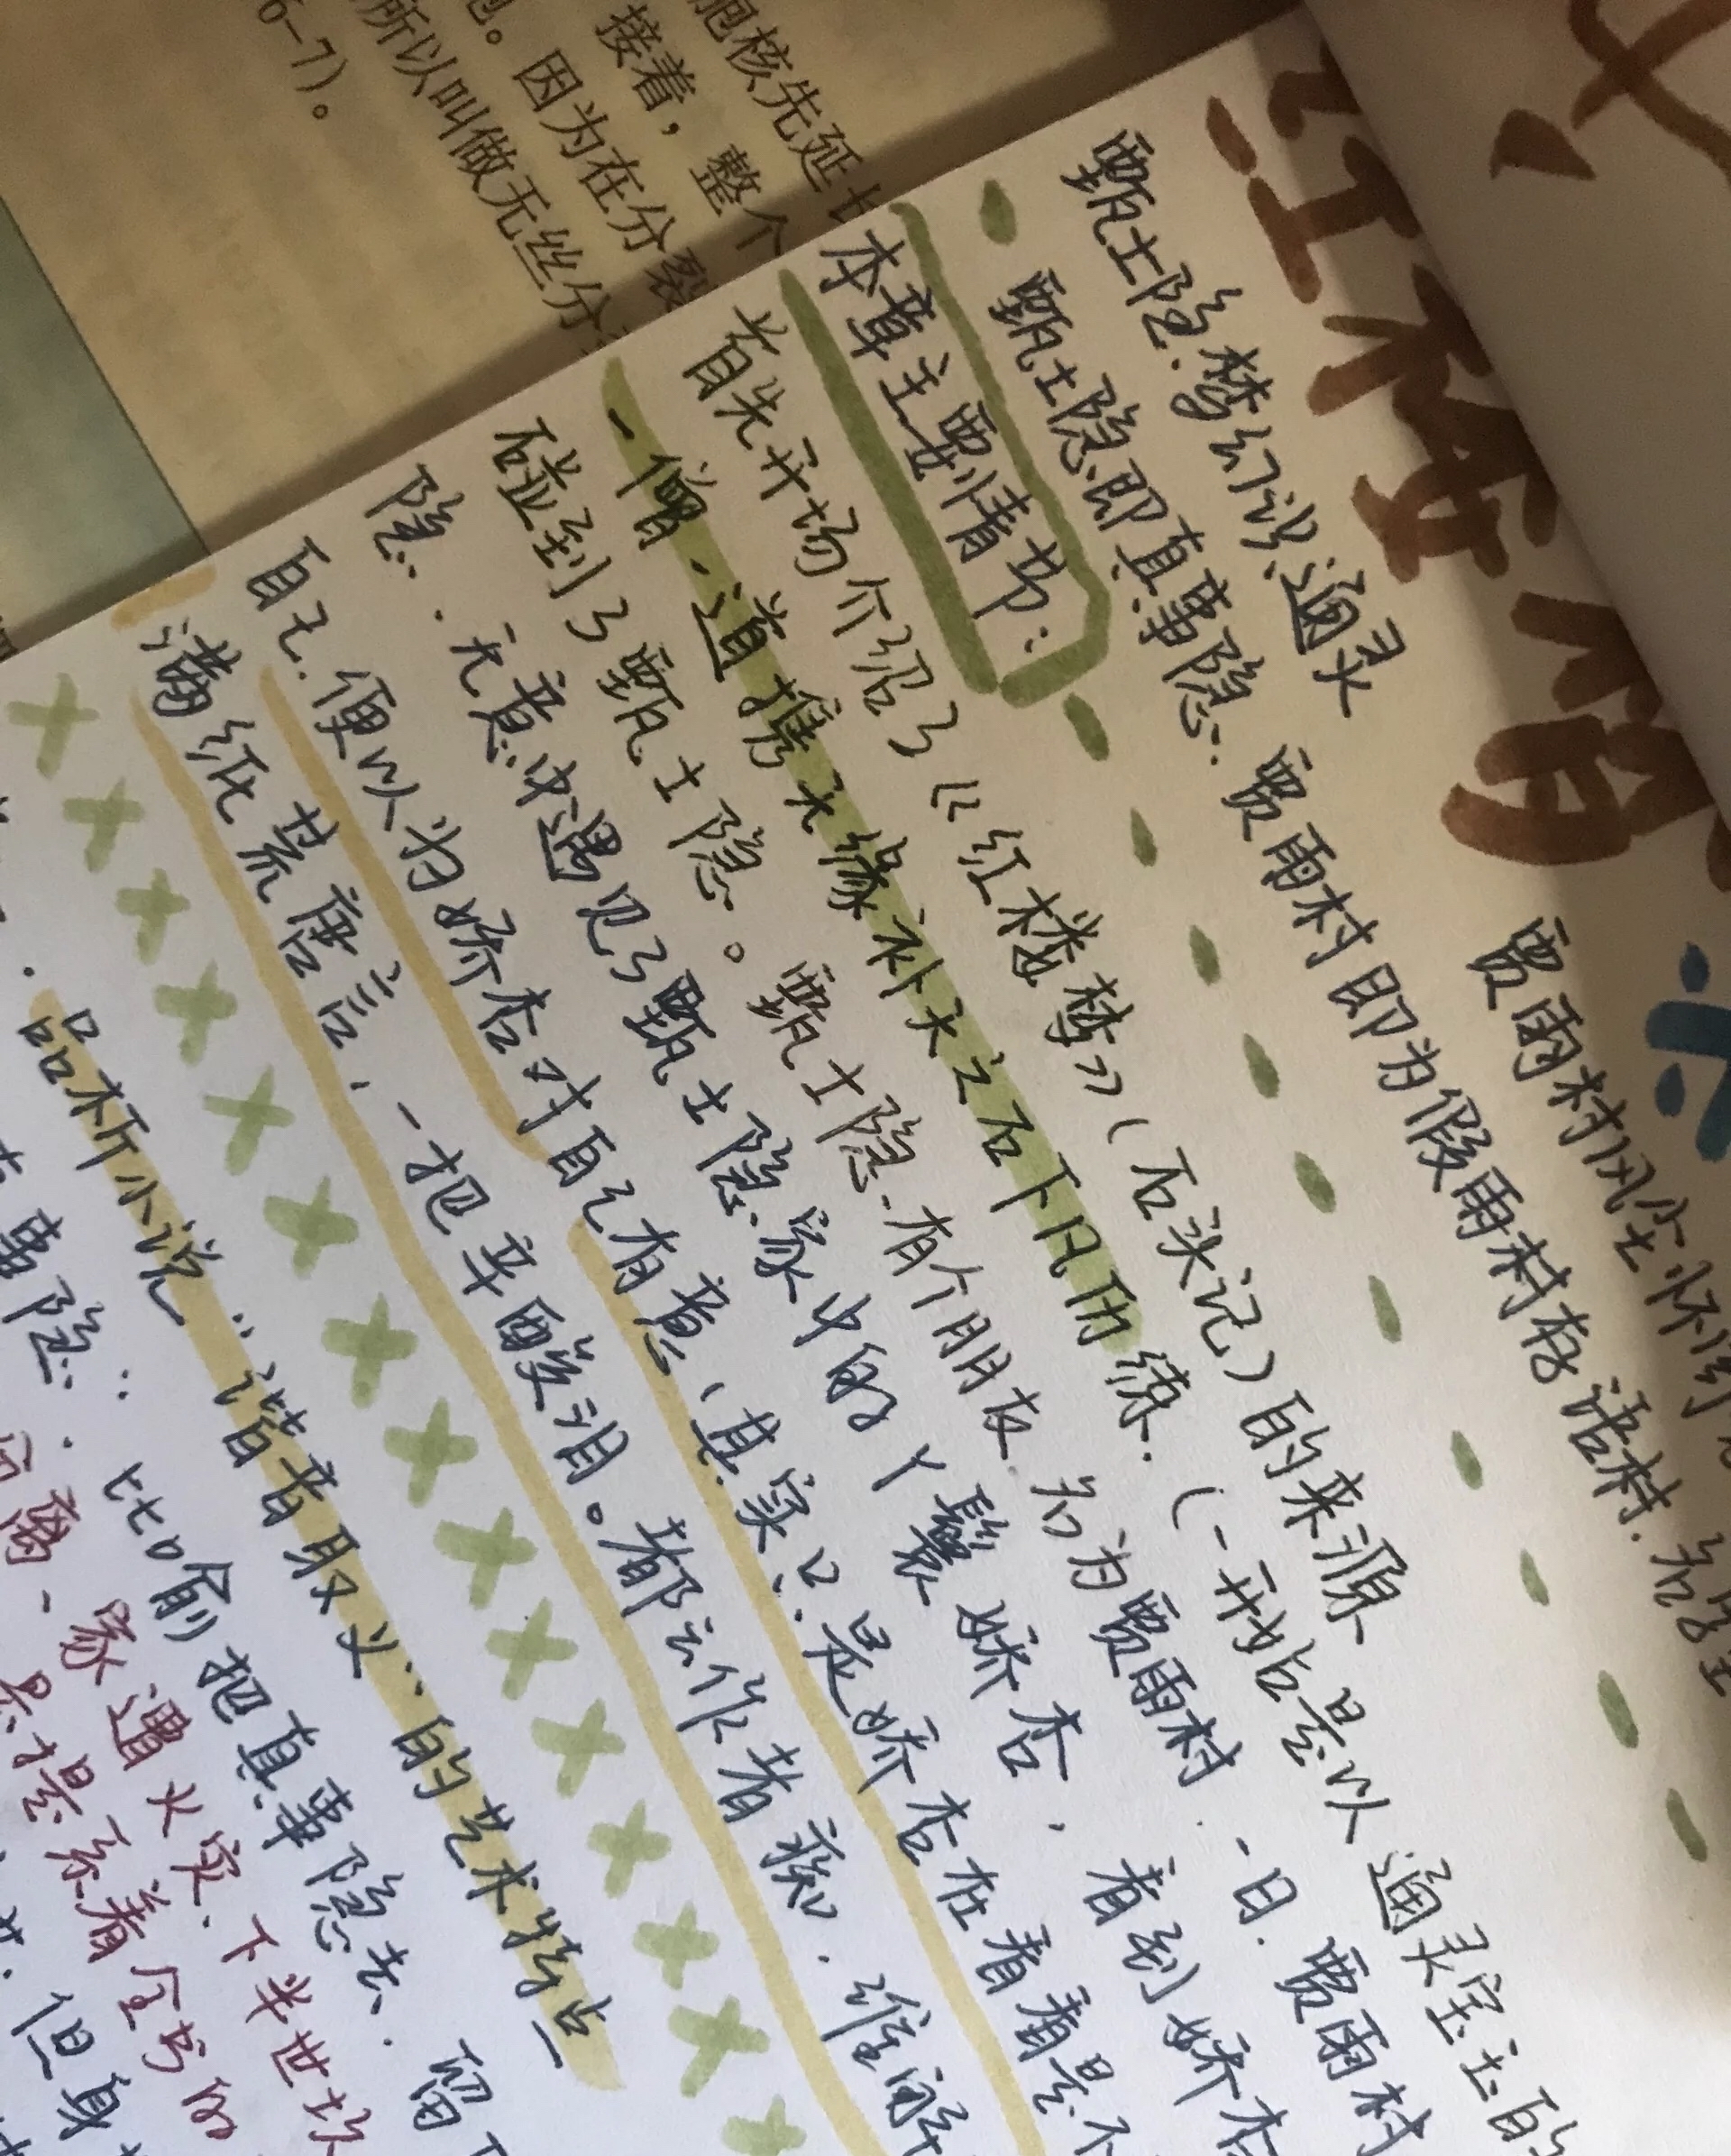 胞核先延长
接着，整个
。因为在分裂
所以叫做无丝分
6-7）。
红楼梦
甄士隐.梦幻识通灵 贾雨村风尘怀
甄士隐即真事隐.贾雨村即为假雨村存语村.
本章主要情节：
首先开场介绍了《红楼梦》（石头记）的来源
一僧一道携无缘补天之石下凡历练.（一开始是以通灵宝玉的
碰到了甄士隐。甄士隐.有个朋友.名为贾雨村.一日.贾雨村
隐.无意中遇见了甄士隐家中的丫鬟娇杏，看到娇杏
自己.便以为娇杏对自己有意、其实只是娇杏在看看是不
满纸荒唐言，一把辛酸泪。都云作者痴.谁解
品析小说“谐音取义”的艺术特点
事隐：比喻把真事隐去.留
离-家遭火灾.下半世坎
是揭示着全书的
但身